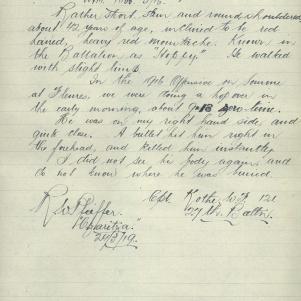 Rather short, thin and round shouldered
about 42 years of age, inclined to be red
haired, heavy red moustache. Known in
the Battalion as "Hoppy". He walked
with slight limp.
In the Offensive on Somme
at Fleurs, we were doing a hop over in
the early morning, about zero time.
He was on my right hand side, and
quite close. A bullet hit him right in
the forehead, and killed him instantly.
I did not see his body again and
do not know where he was buried.
R. Pfeiffer. Cpl.
27th Battn.